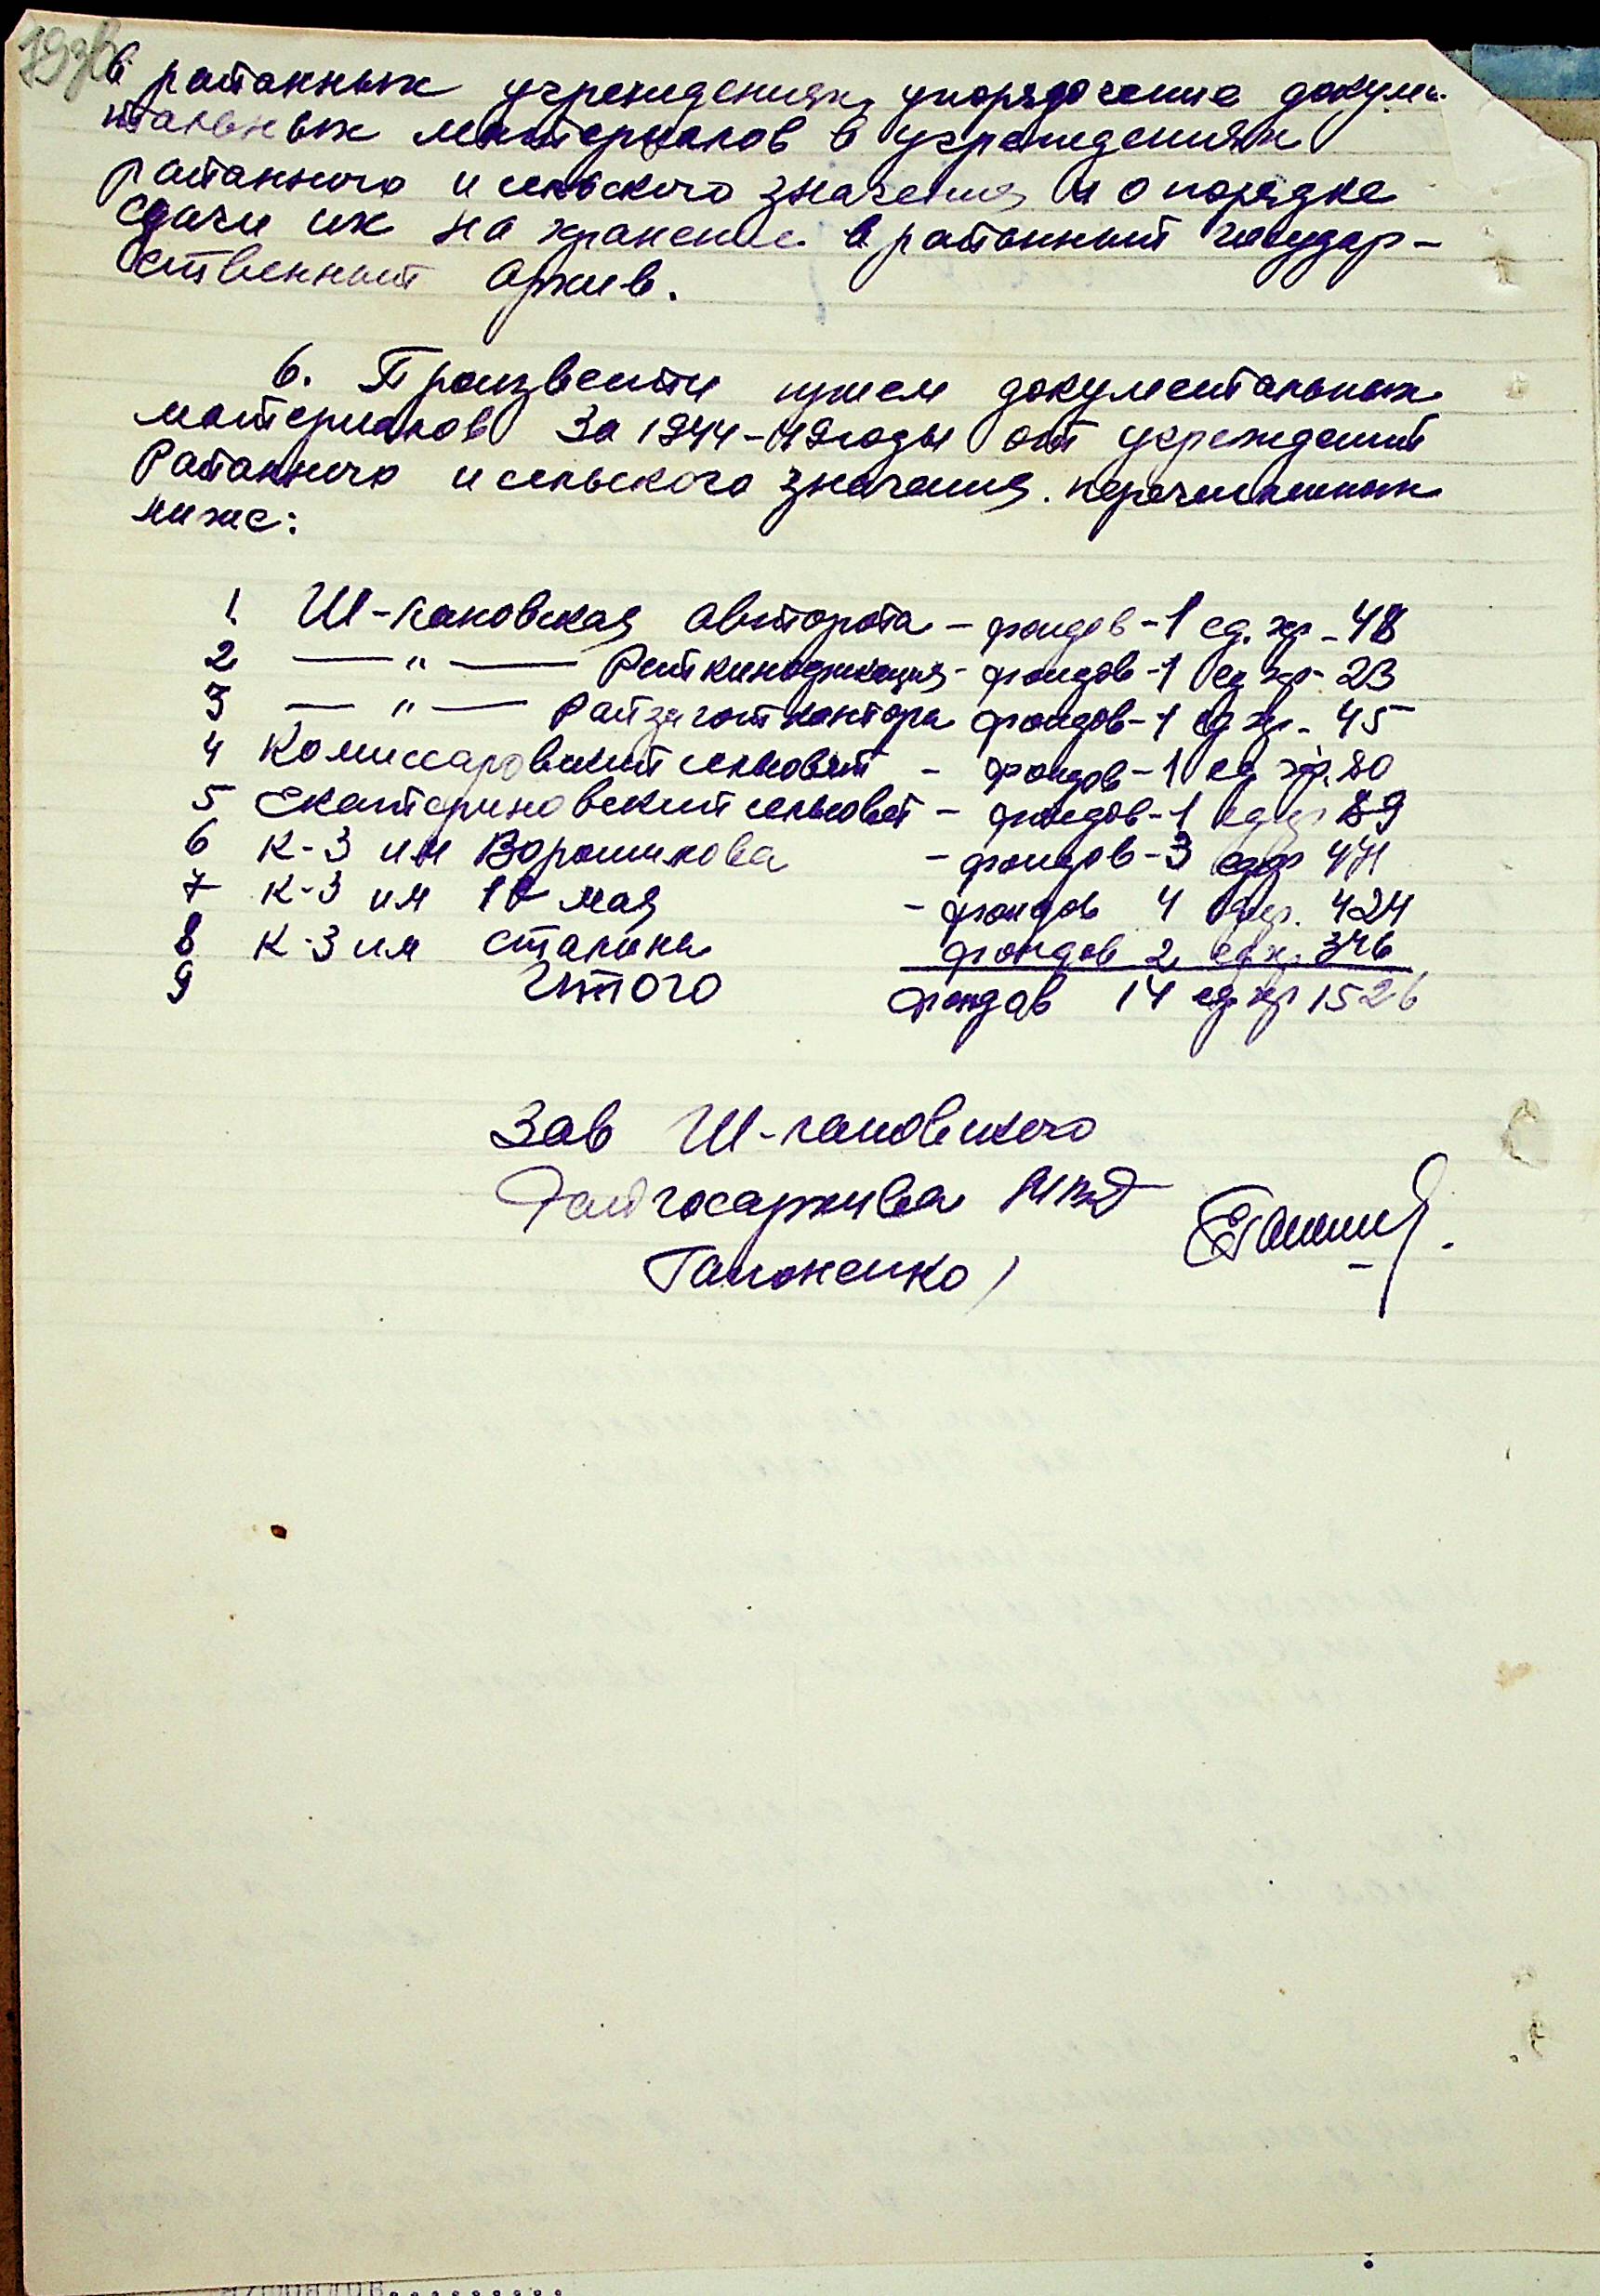 в районных учреждениях, упорядочение докуме-
нтальных материалов в учреждениях
районного и сельского значения и о порядке
сдачи их на хранение в районный государ-
ственный архив.
6. Произвести прием документальных
материалов за 1944-49 годы от учреждений
Районного и сельского значения. перечисленных
ниже:
1. Ш-кановская авторота - фондов - 1 ед. хр - 48
2 — " — Рай кинофикация - фондов - 1 ед хр - 23
3 — " — Райзаготконтора фондов - 1 ед хр - 45
4 Комиссаровский сельсовет - фондов - 1 ед хр. 80
5 Екатериновский сельсовет - фондов - 1 ед хр 89
6 К-З им Ворошилова - фондов - 3 ед хр 471
7 К-З им 1 мая - фондов 4 ед хр. 424
8 К-З им Сталина фондов 2 ед х. 346
9 Итого фондов 14 ед хр 1526
Зав Ш-кановского
Райгосархива МВД
Гапоненко)